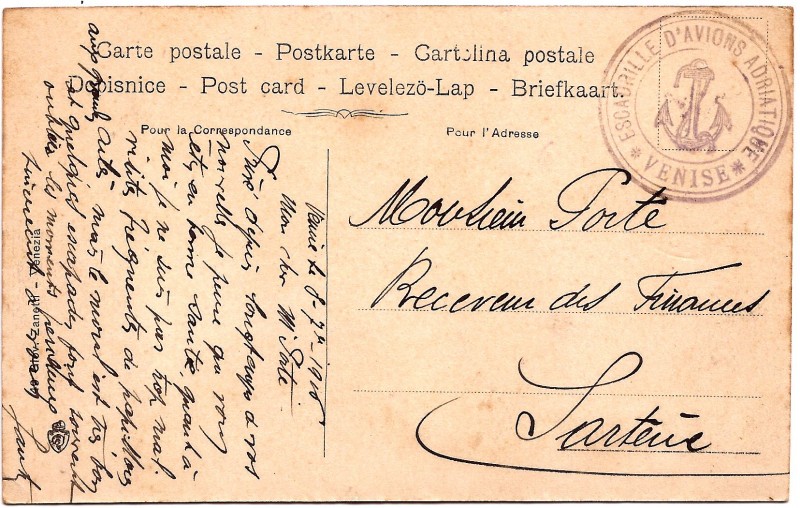 Carte postale - Postkarte - Cartolina postale
Dopisnice - Post card - Levelezö-Lap - Briefkaart.
Pour la Correspondance
Pour l'Adresse
ESCADRILLE D'AVIONS ADRIATIQUE
* VENISE *
Venise Le 8 1916
Mon cher M Porte
Privé depuis longtemps de vos
nouvelles je pense que vous
etes en bonne santé, quant à
moi je ne suis pas trop mal.
visites fréquentes de papillons
mais le moral est très bon
et quelques escapades font souvent
oublier les moments
Monsieur Porte
Receveur des Finances
Sartène
Zanetti - Venezia